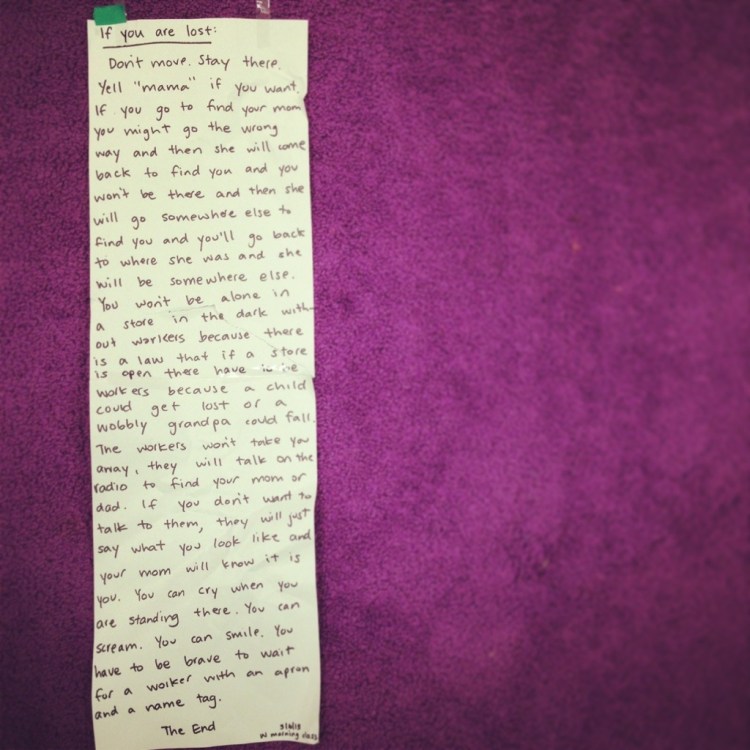 If you are lost:
Don't move. Stay there.
Yell "mama" if you want.
If you go to find your mom
you might go the wrong
way and then she will come
back to find you and you
won't be there and then she
will go somewhere else to
find you and you'll go back
to where she was and she
will be somewhere else.
You won't be alone in
a store in the dark with-
out workers because there
is a law that if a store
is open there have to be
workers because a child
could get lost or a
wobbly grandpa could fall.
The workers won't take you
away, they will talk on the
radio to find your mom or
dad. If you don't want to
talk to them, they will just
say what you look like and
your mom will know it is
you. You can cry when you
are standing there. You can
scream. You can smile. You
have to be brave to wait
for a worker with an apron
and a name tag.
The End
morning class